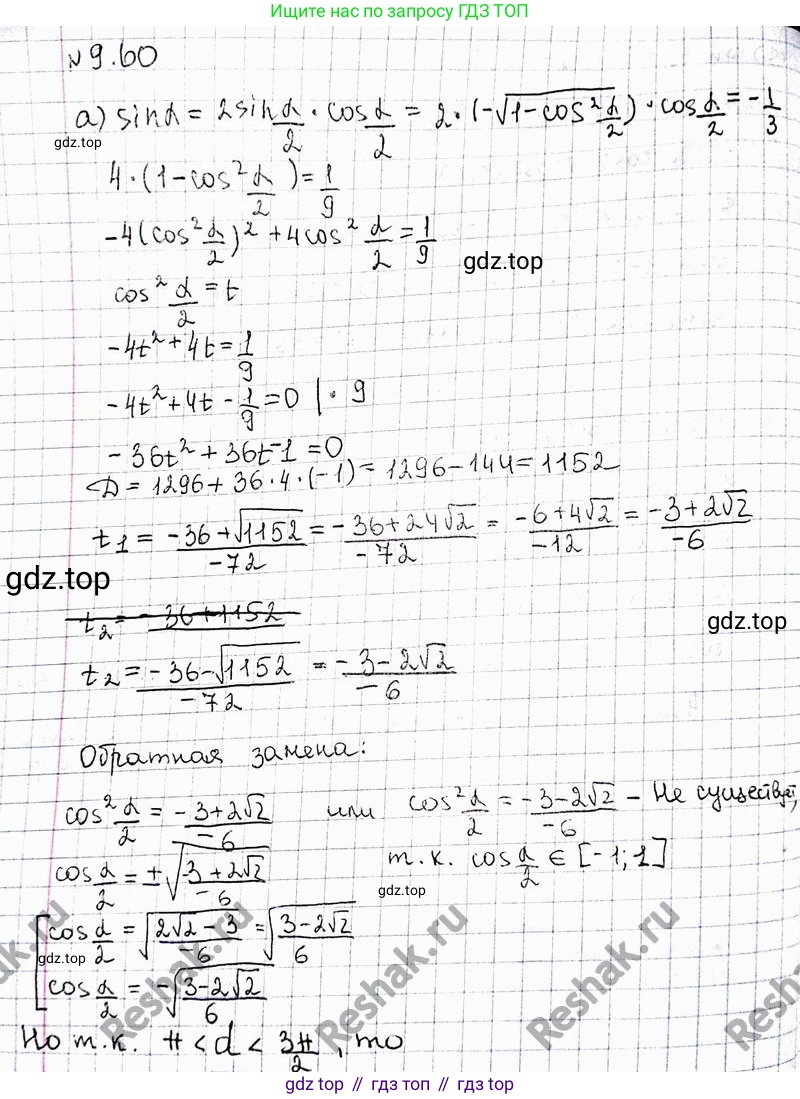 Ищите нас по запросу ГДЗ ТОП
№9.60
а) sinα = 2sin α/2 · cos α/2 = 2·(-√(1-cos² α/2))·cos α/2 = -1/3
gdz.top
4·(1-cos² α/2) = 1/9
-4(cos² α/2)² + 4cos² α/2 = 1/9
gdz.top
cos² α/2 = t
-4t² + 4t = 1/9
-4t² + 4t - 1/9 = 0 | · 9
-36t² + 36t - 1 = 0
D = 1296 + 36·4·(-1) = 1296 - 144 = 1152
t₁ = (-36+√1152)/-72 = (-36+24√2)/-72 = (-6+4√2)/-12 = (-3+2√2)/-6
gdz.top
t₂ = - 36+1152
gdz.top
t₂ = (-36-√1152)/-72 = (-3-2√2)/-6
Обратная замена:
cos² α/2 = (-3+2√2)/-6 или cos² α/2 = (-3-2√2)/-6 - Не существует,
cos α/2 = ±√((-3+2√2)/-6) т.к. cos α/2 ∈ [-1;1]
gdz.top
cos α/2 = √((2√2-3)/6) = √((3-2√2)/6)
gdz.top
cos α/2 = -√((3-2√2)/6)
Reshak.ru
Reshak.ru
Reshak.ru
Но т.к. π < α < 3π/2, то
gdz.top // гдз топ // gdz.top // гдз.топ